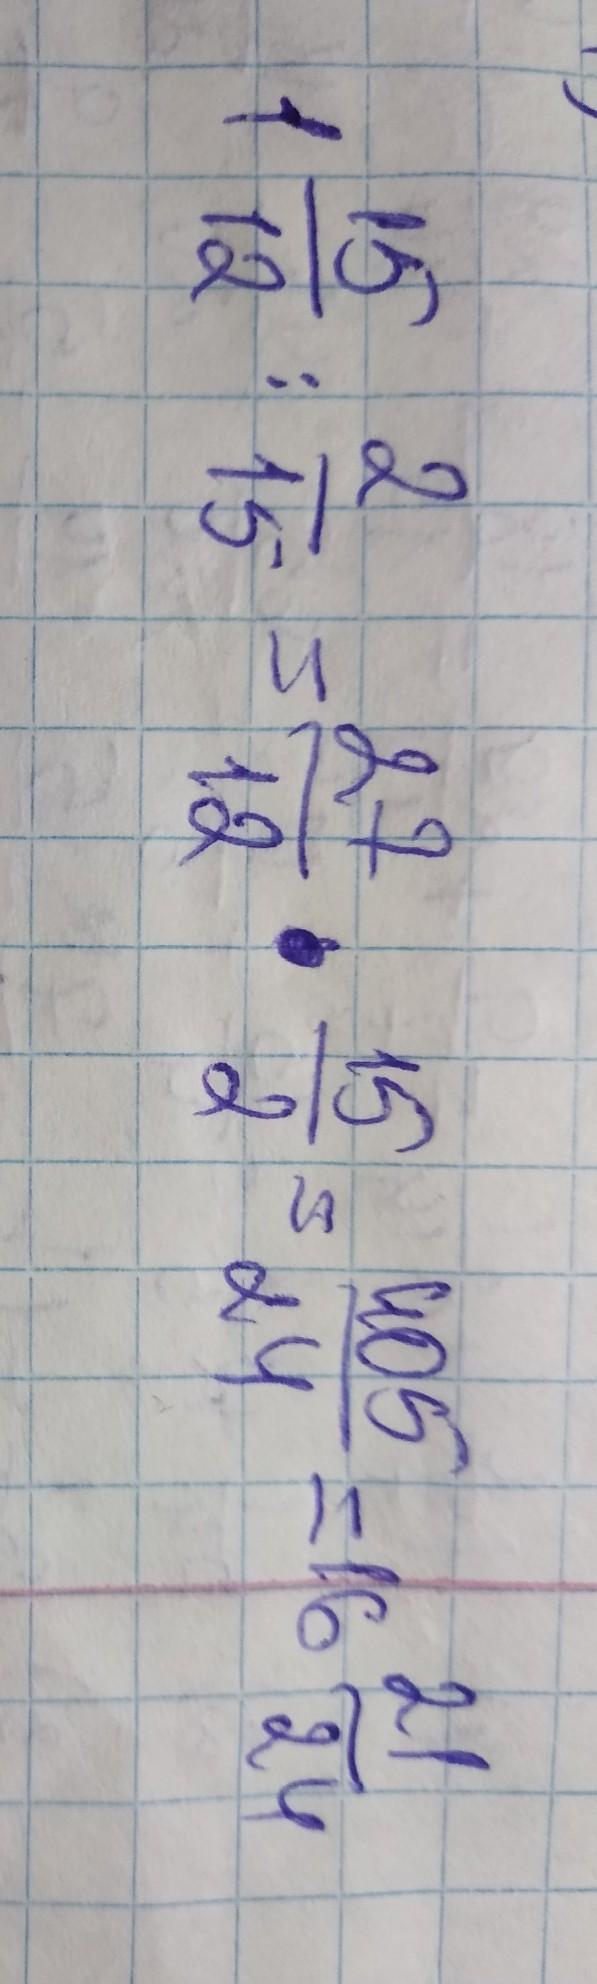 1 15/12 : 2/15 = 27/12 · 15/2 = 405/24 = 16 21/24